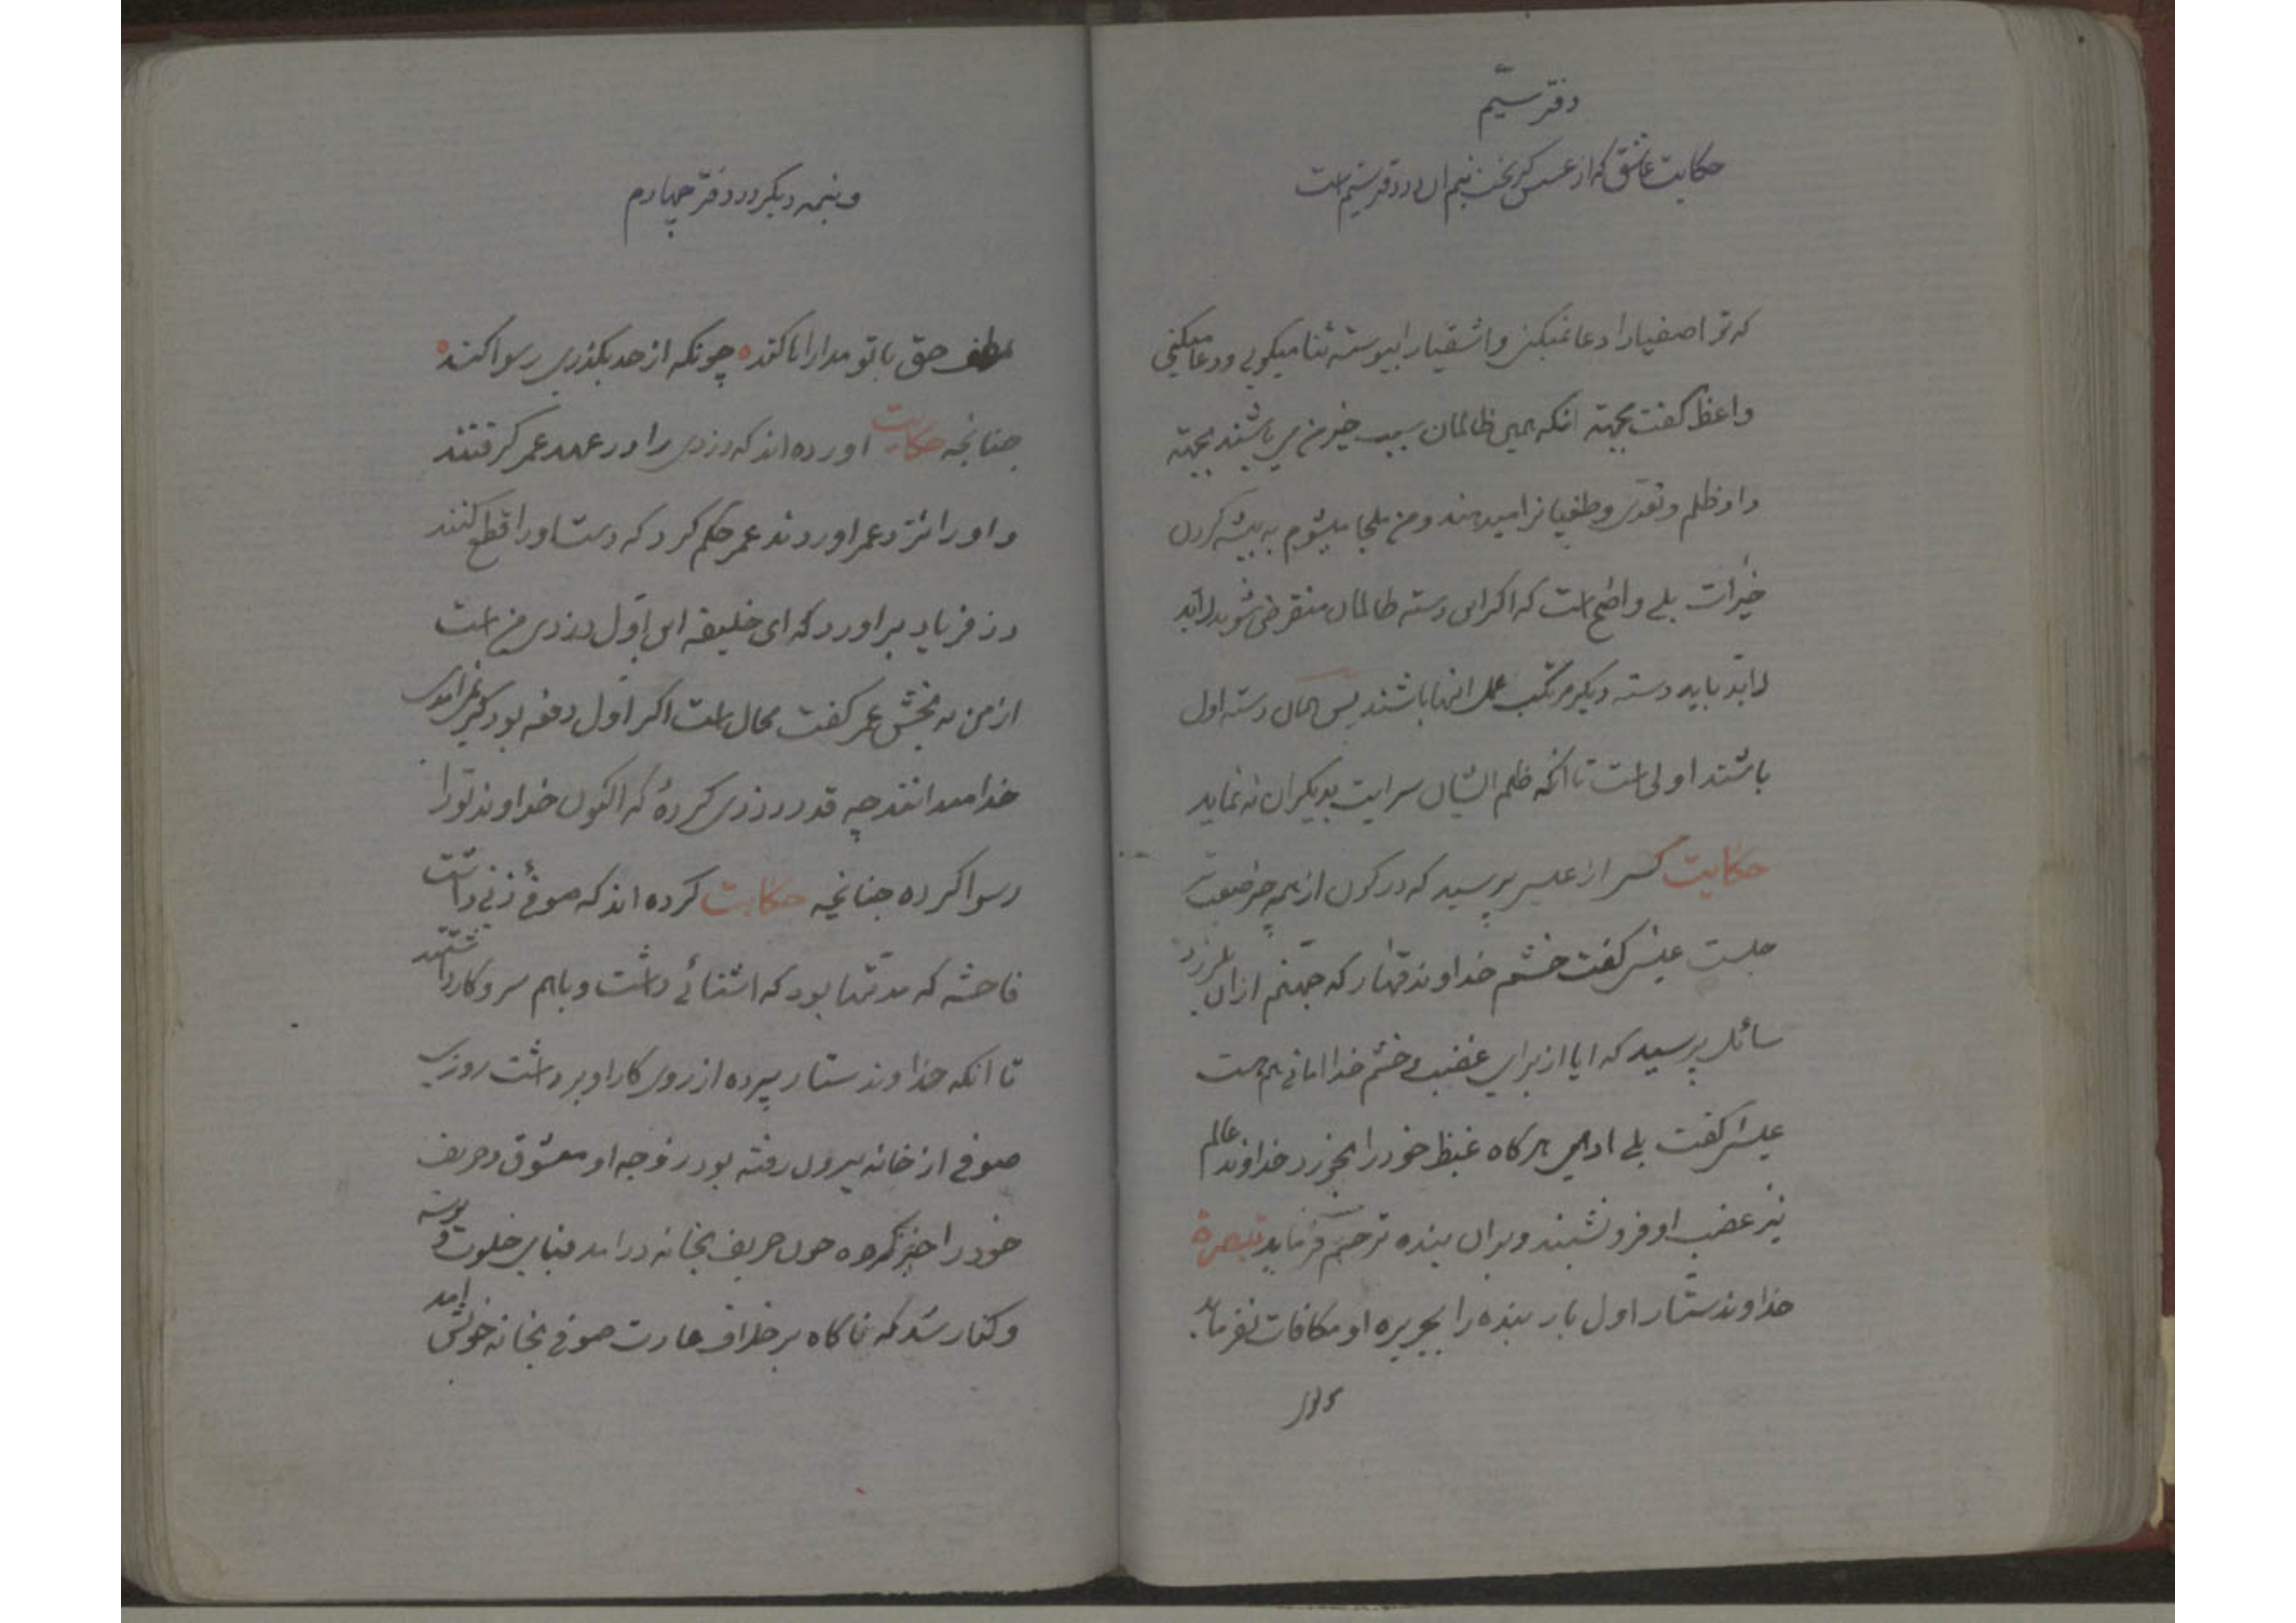 دفتر سیّم
حکایت عاشق که از عسس گریخت نیم ان در دفتر سیم است
که تو اصفیا را دعا نمیکنی و اشقیا را پیوسته ثنا میکویی و دعا میکنی
واعظ کفت بجهته انکه همین ظالمان سبب خیر من می باشند بجهته
داد ظلم و تعدی و طغیانرا میدهند و من ملجا میشوم به پیشه کردن
خیرات بلی واضح است که اکر این دسته ظالمان منقرض شوند لابد
لابد باید دسته دیکر مرتکب عمل انها باشند پس همان دسته اول
باشند اولی است تا انکه ظلم ایشان سرایت بدیکران نه نماید
حکایت کسی از عیسی پرسید که در کون از همه چیز صعب تر
چیست عیسی کفت خشم خداوند قهار که جهنم از ان بلرزد
سائل پرسید که ایا از برای غضب و خشم خدا امانی هم هست
عیسی کفت بلی ادمی هرکاه غیظ خود را بخورد خداوند عالم
نیز غضب او فرو نشیند و بران بنده ترحم فرماید تبصرة
خداوند ستّار اول بار بنده را بجریره او مکافات نفرماید
و نیمه دیکر در دفتر چهارم
لطف حق با تو مداراها کند چونکه از حد بکذری رسوا کند
چنانچه حکایت اورده اند که دزدی را در عهد عمر کرفتند
و او را نزد عمر اوردند عمر حکم کرد که دست او را قطع کنند
دزد فریاد براورد که ای خلیفه این اوّل دزدی من است
از من به بخش عمر کفت محال است اکر اول دفعه بود کیر نمی امدی
خدا میداند چه قدر دزدی کردهٔ که اکنون خداوند تو را
رسوا کرده چنانچه حکایت کرده اند که صوفیٔ زنی داشت
فاحشه که مدتها بود که اشنائی داشت و باهم سر و کار داشتند
تا انکه خداوند ستار پرده از روی کار او برداشت روزی
صوفی از خانه بیرون رفته بود زوجه او معشوق و حریف
خود را خبر کرده چون حریف بخانه درامد بنای خلوت و بوسه
و کنار شد که ناکاه بر خلاف عادت صوفی بخانه خویش امد